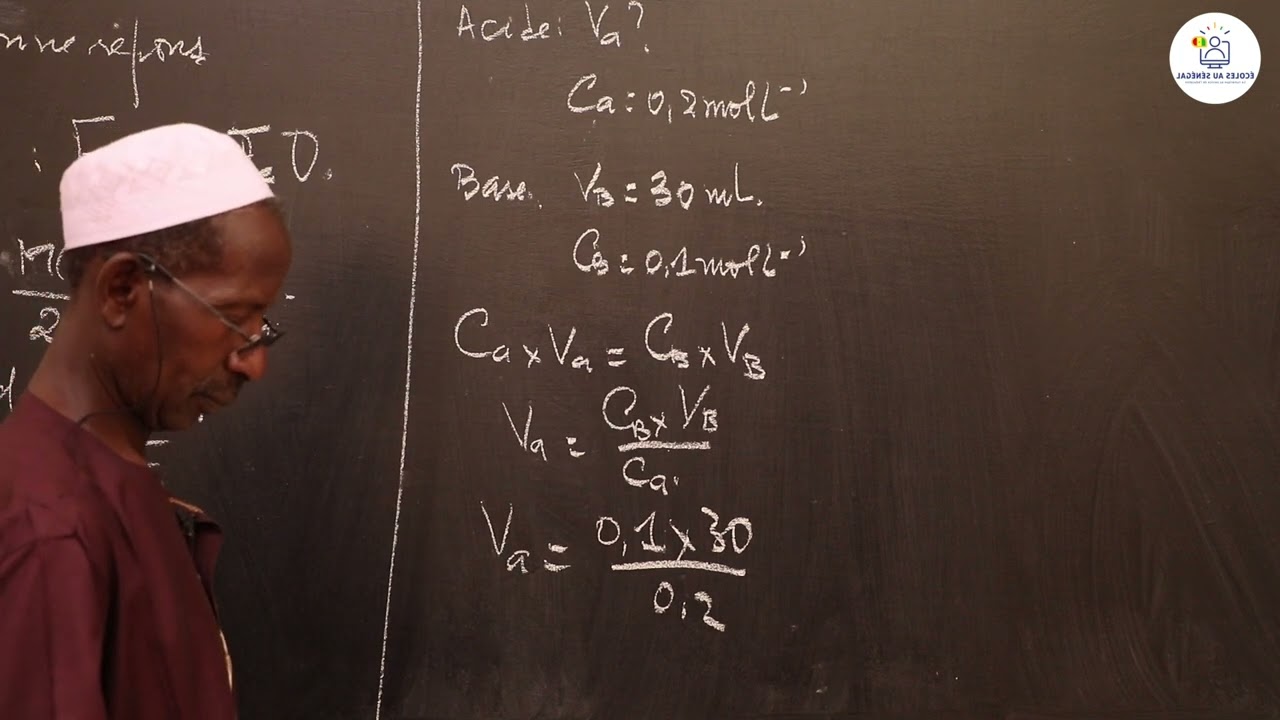 nne répons
D.
2
Acide: Va?
Ca = 0,2 mol L⁻¹
Base. VB = 30 mL.
CB = 0,1 mol L⁻¹
Ca x Va = CB x VB
Va = CB x VB
Ca.
Va = 0,1 x 30
0,2
ÉCOLES AU SÉNÉGAL